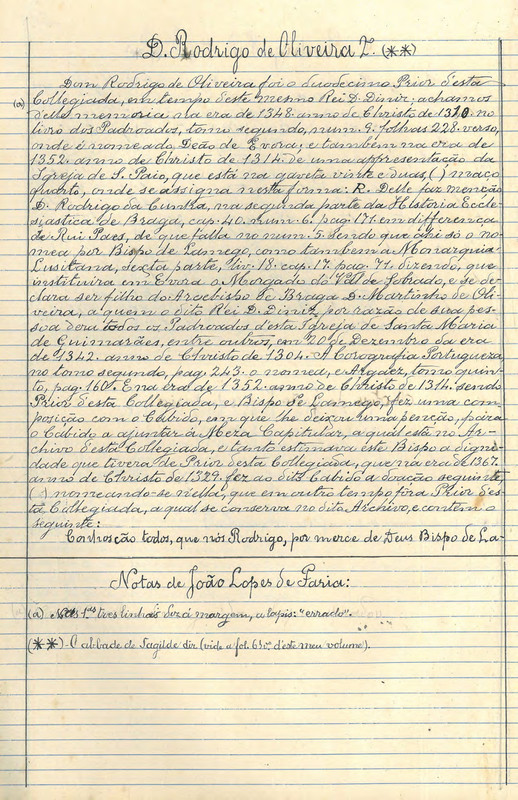 D. Rodrigo de Oliveira 2. (**)
Dom Rodrigo de Oliveira foi o duodecimo Prior d'esta
(a) Collegiada, em tempo d'este mesmo Rei D. Diniz; achamos
delle memoria na era de 1348 anno de Christo de 1310 no
livro dos Padroados, tomo segundo, num. 9. folhas 228 verso,
onde é nomeado Deão de Evora; e tambem na era de
1352. anno de Christo de 1314. de uma appresentação da
Igreja de S. Paio, que está na gaveta vinte e duas, ( ) maço
quarto, onde se assigna nesta forma: R. Delle faz menção
D. Rodrigo da Cunha, na segunda parte da Historia Eccle-
siastica de Braga, cap. 40. num. 6. pag. 171. em differença
de Rui Paes, de que falla no num. 5. sendo que ahi só o no-
mea por Bispo de Lamego, como tambem a Monarquia
Lusitana, sexta parte, liv. 18. cap. 17. pag. 77. dizendo, que
instituira em Evora o Morgado do Val de Sobrado, e se de-
clara ser filho do Arcebispo de Braga D. Martinho de Oli-
veira, a quem o dito Rei D. Diniz, por razão de sua pes-
soa deu todos os Padroados d'esta Igreja de Santa Maria
de Guimarães, entre outros, em 20 de Dezembro da era
de 1342. anno de Christo de 1304. A Corografia Portugueza
no tomo segundo, pag. 243. o nomea, e Argaez, tomo quin-
to, pag. 160. E na era de 1352. anno de Christo de 1314. sendo
Prior d'esta Collegiada, e Bispo de Lamego, fez uma com-
posição com o Cabido, em que lhe deixou uma penção, para
o Cabido a ajuntar á Meza Capitular, a qual está no Ar-
chivo d'esta Collegiada, e tanto estimava este Bispo a digni-
dade que tivera de Prior d'esta Collegiada, que na era de 1367.
anno de Christo de 1329. fez ao dito Cabido a doação seguinte,
( ) nomeando-se n'ella, que em outro tempo fôra Prior d'es-
ta Collegiada, a qual se conserva no dito Archivo, e contém o
seguinte:
Conhosção todos, que nós Rodrigo, por merce de Deus Bispo de La-
Notas de João Lopes de Faria:
(a) Nas 1.as tres linhas á margem, a lapis: "errado".
(**) O abbade de Tagilde diz (vide a fol. 630 d'este meu volume).